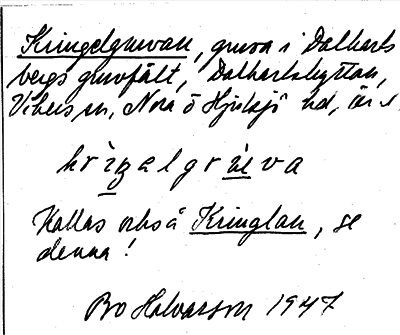 Kringelgruvan, gruva i Dalkarls
bergs gruvfält, Dalkarlshyttan,
Vikers sn, Nora o Hjulsjö hd, är s
krìŋelgrùva
Kallas också Kringlan, se
denna!
Bo Halvarson 1947